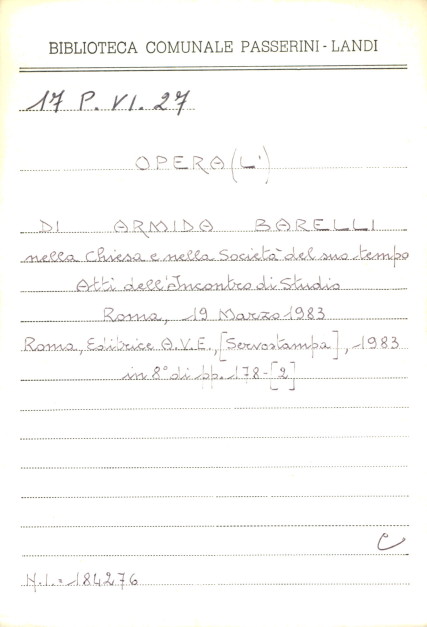 BIBLIOTECA COMUNALE PASSERINI - LANDI
17 P. VI. 27
OPERA (L')
DI ARMIDA BARELLI
nella Chiesa e nella Società del suo tempo
Atti dell'Incontro di Studio
Roma, 19 Marzo 1983
Roma, Editrice A.V.E., [Servostampa], 1983
in 8° di pp. 178-[2]
C
N.I. = 184276